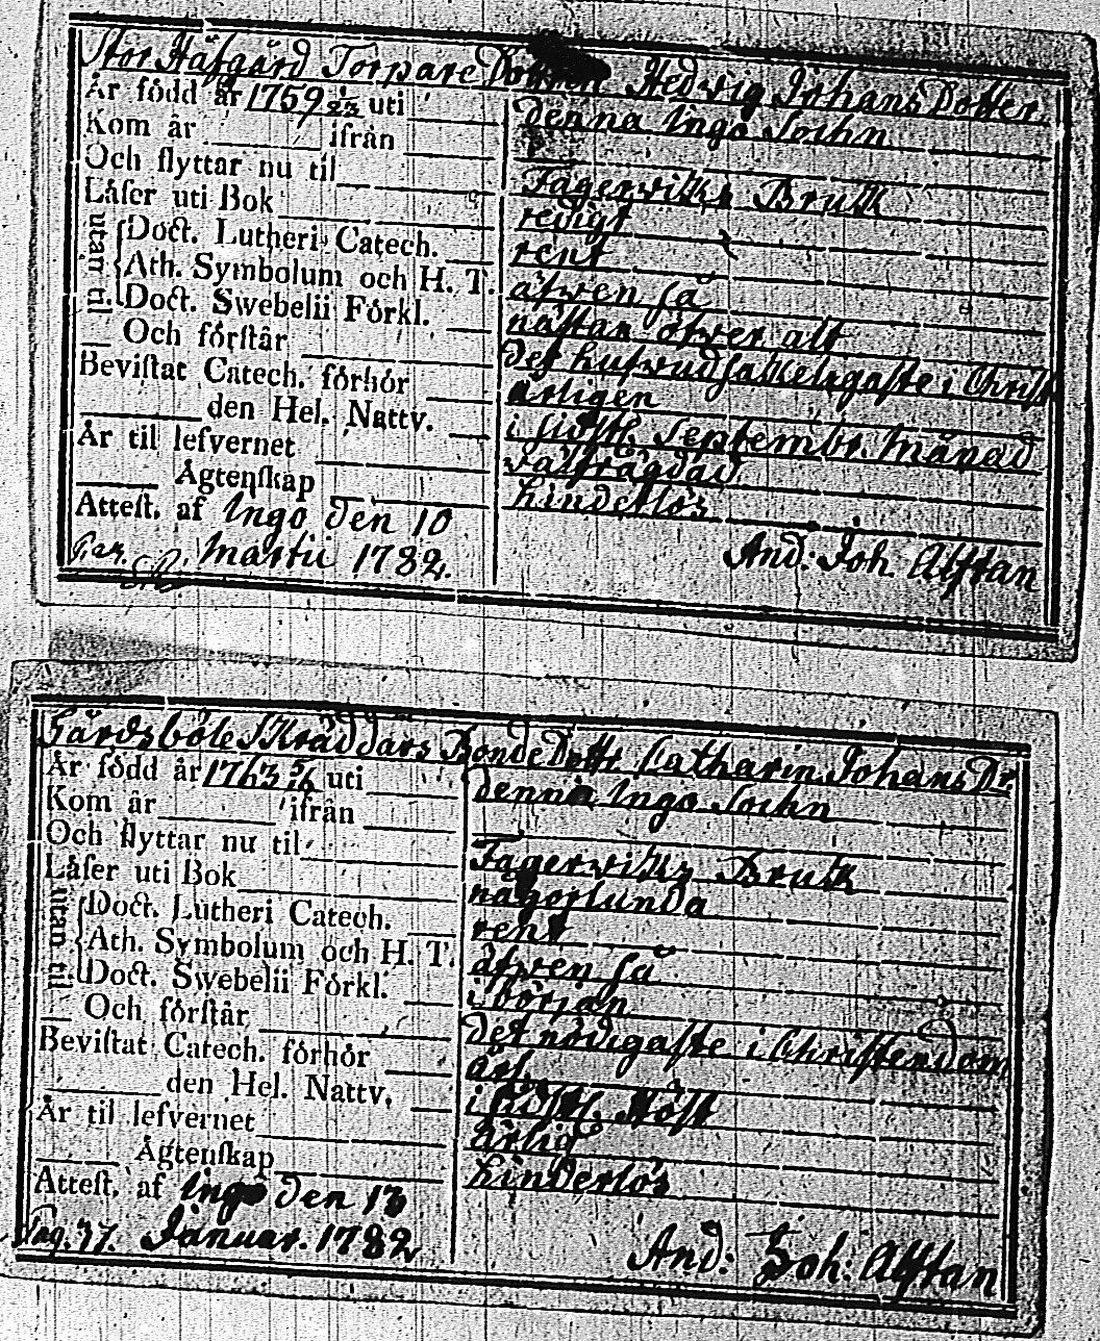 Stor Håfgård Torpare Dottren Hedwig Johans Dotter.
År född år 1759 uti denna Ingo Sochn
Kom år ifrån
Och flyttar nu til Fagerwiks Bruk
Låser uti Bok redigt
utan til
Doct. Lutheri Catech. rent
Ath. Symbolum och H. T. äfwen så
Doct. Swebelii Förkl. nästan öfwer alt
Och förstår det hufwudsakeligaste i Christ
Bevistat Catech. förhör årligen
den Hel. Nattv. i sidstl. Septembr. Månad
År til lefvernet välfrägdad
Ägtenskap hinderlös
Attest. af Ingo den 10
Martii 1782. And. Joh. Alftan
Gårdsböle Skräddars Bonde Dottr Catharin Johans Dr.
År född år 1763 5/6 uti denna Ingo Sochn
Kom år ifrån
Och flyttar nu til Fagerwiks Bruk
Låser uti Bok någorlunda
utan til
Doct. Lutheri Catech. rent
Ath. Symbolum och H. T. äfwen så
Doct. Swebelii Förkl. i början
Och förstår det nödigaste i Christendom
Bevistat Catech. förhör årl.
den Hel. Nattv. i sidstl. Höst
År til lefvernet ärlig
Ägtenskap hinderlös
Attest. af Ingo den 13
Pag. 37. Januar. 1782 And: Joh: Alftan